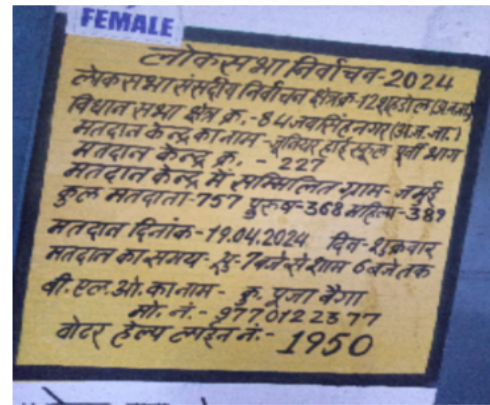 FEMALE
लोकसभा निर्वाचन-2024
लोकसभा संसदीय निर्वाचन क्षेत्र क्र.-12 शहडोल (अ.ज.जा.)
विधान सभा क्षेत्र क्र.-84 जयसिंहनगर (अ.ज.जा.)
मतदान केन्द्र का नाम-जूनियर हाई स्कूल पूर्वी भाग
मतदान केन्द्र क्र. - 227
मतदान केन्द्र में सम्मिलित ग्राम-जमुई
कुल मतदाता-757 पुरुष-368 महिला-389
मतदान दिनांक-19.04.2024 दिन-शुक्रवार
मतदान का समय-प्रा-7 बजे से शाम 6 बजे तक
बी.एल.ओ. का नाम- कु. पूजा बैगा
मो. नं.- 9770122377
वोटर हेल्प लाईन नं.- 1950